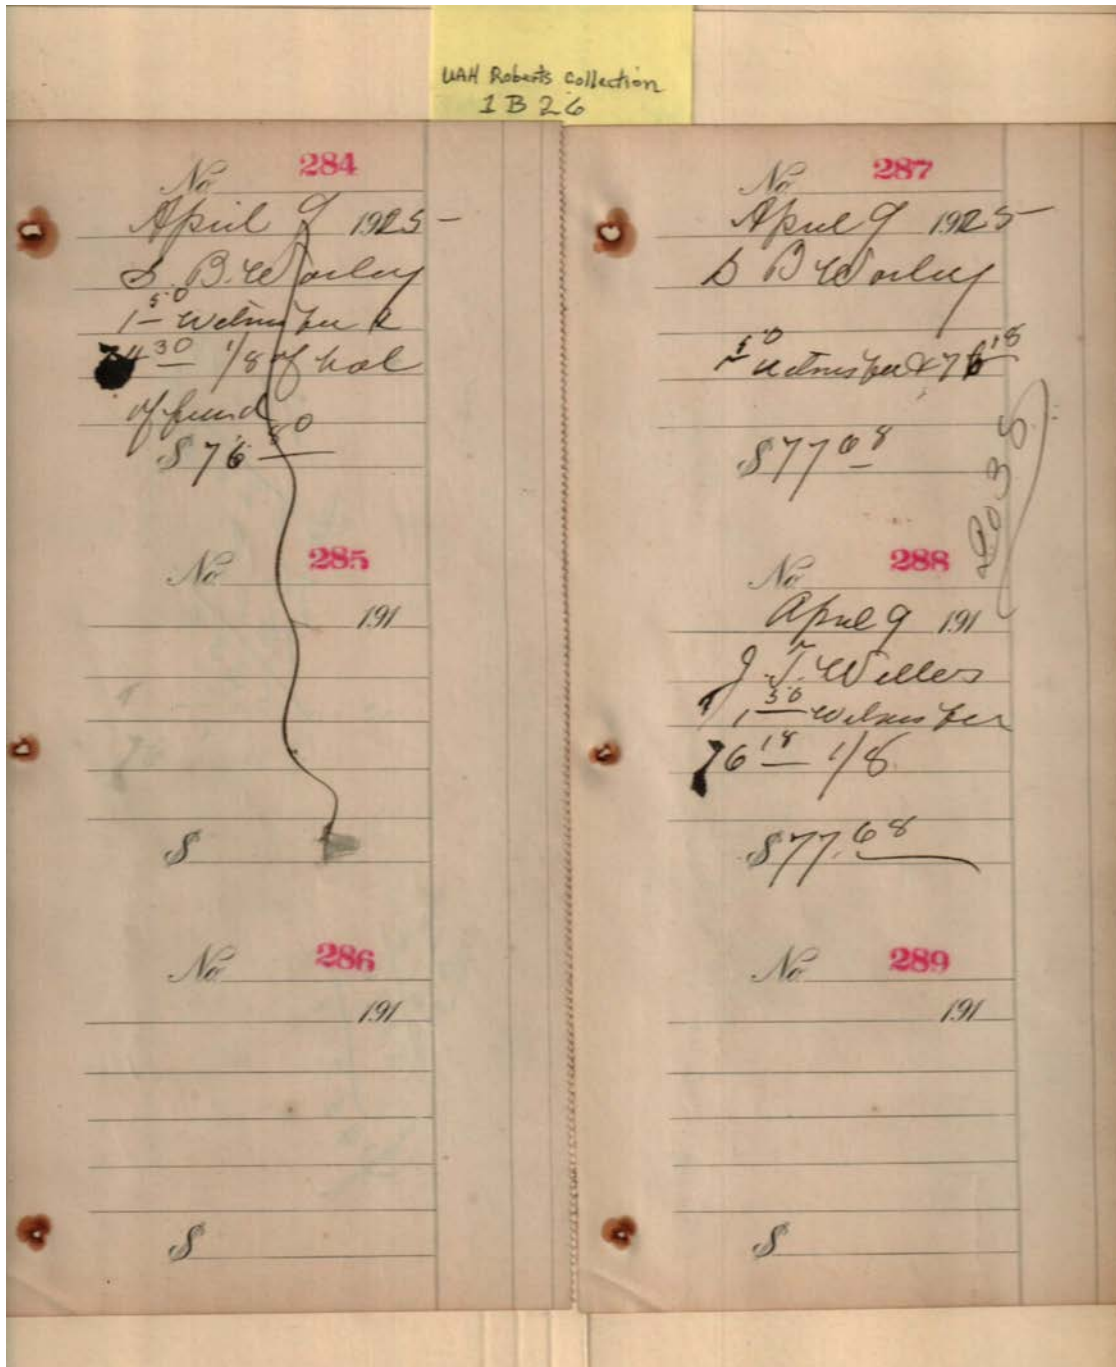 UAH Roberts Collection
1B26
No 284
April 9 1925
S. B. Worley
1 50 Witness fee &
74 30 1/8 of bal
of fund
$ 76 80
No 285
191
$
No 286
191
$
No 287
April 9 1925
S B Worley
1 50 Witness fee & 76 18
$ 77 68
No 288
April 9 191
J. T.
1 50 Witness fee
76 18 1/8
$ 77.68
No 289
191
$